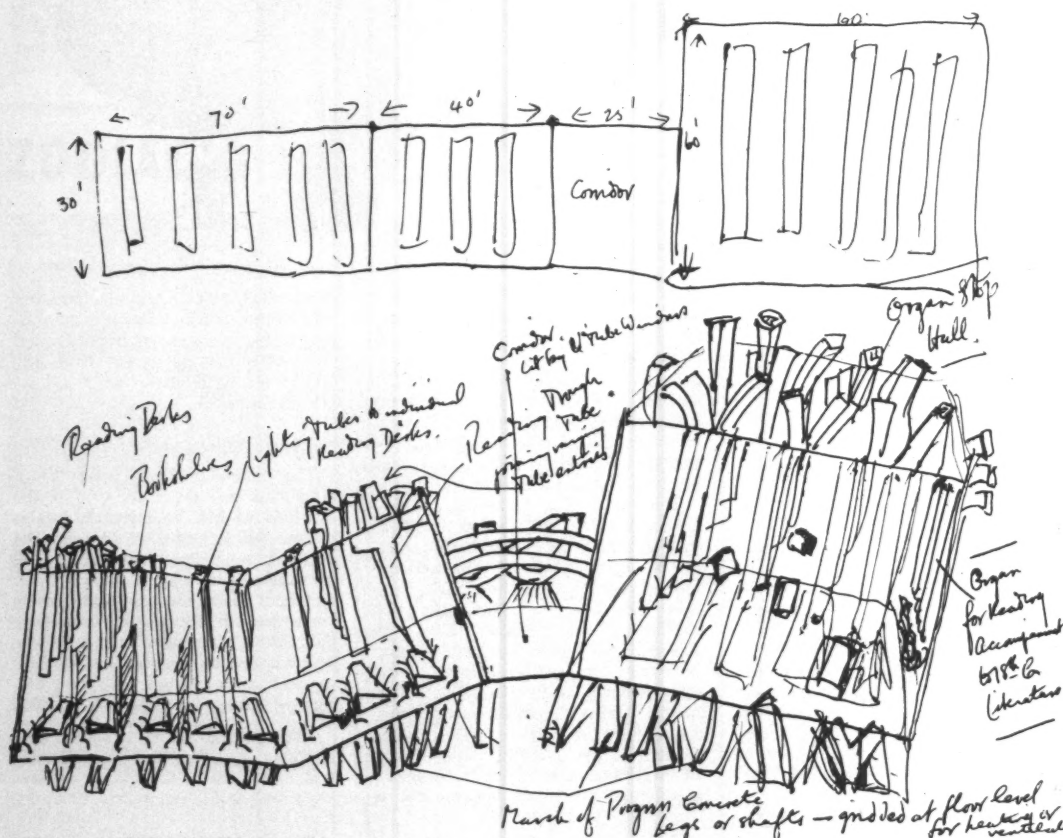 60'
70'
40'
25'
30'
60'
Corridor
Organ Stop
Hull.
Corridor.
Lit by Tube Windows
Reading Desks
Bookshelves
Lighting Tubes to individual
Reading Desks.
Reading Trough
Tube.
joining varying
Tube entries
Organ
for Reading
Accompaniment
to 18th Co
Literature
March of Progress Concrete
Legs or shafts — gridded at floor level
for heating or
ventilation